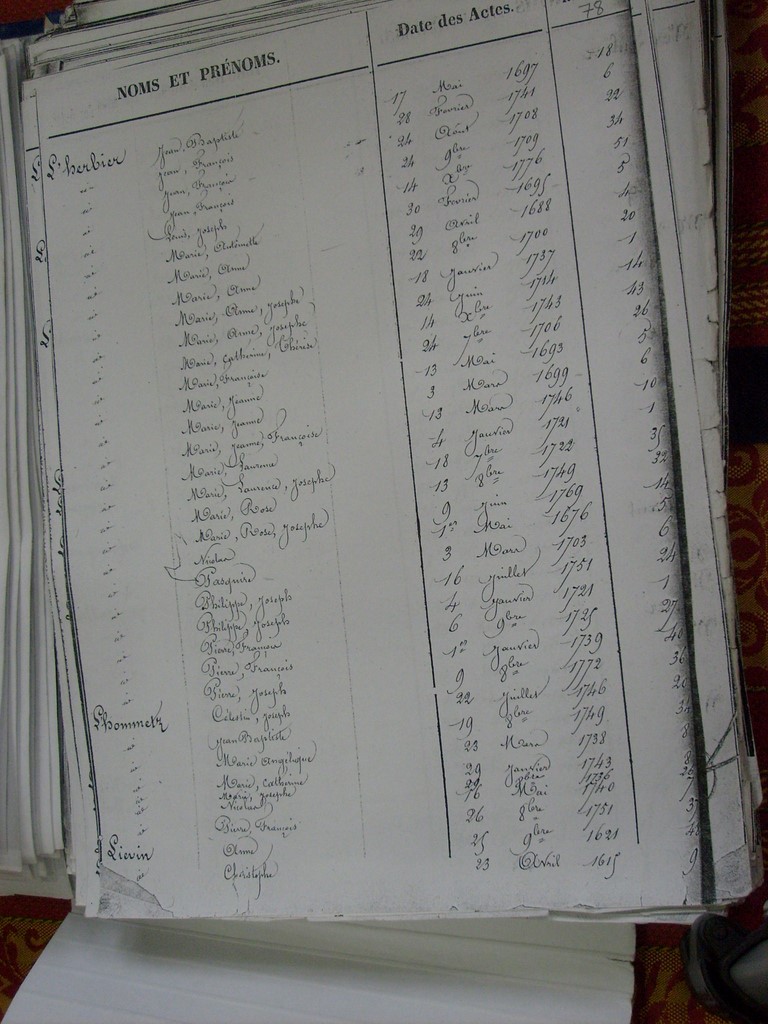 NOMS ET PRÉNOMS. Date des Actes. 78
L'herbier Jean, Baptiste 17 Mai 1697 18
id Jean, François 28 Fevrier 1741 6
id Jean, François 24 Aout 1708 22
id Jean, François 24 9bre 1709 34
id Louis, Joseph 14 Xbre 1776 51
id Marie, Antoinette 30 Fevrier 1695 5
id Marie, Anne 29 Avril 1688 4
id Marie, Anne 22 8bre 1700 20
id Marie, Anne, Josephe 18 Janvier 1737 1
id Marie, Anne, Josephe 24 Juin 1714 14
id Marie, Catherine, Thérèse 14 Xbre 1743 43
id Marie, Françoise 24 7bre 1706 26
id Marie, Jeanne 13 Mai 1693 5
id Marie, Jeanne 3 Mars 1699 6
id Marie, Jeanne, Françoise 13 Mars 1746 10
id Marie, Laurence 4 Janvier 1721 1
id Marie, Laurence, Josephe 18 7bre 1722 35
id Marie, Rose 13 8bre 1749 32
id Marie, Rose, Josephe 9 Juin 1769 14
id Nicolas 1er Mai 1676 5
id Pasquire 3 Mars 1703 6
id Philippe, Joseph 16 Juillet 1751 24
id Philippe, Joseph 4 Janvier 1721 1
id Pierre, François 6 9bre 1725 27
id Pierre, François 1er Janvier 1739
id Pierre, Joseph 9 8bre 1772 36
Lhommetz Célestin, Joseph 22 Juillet 1746 26
id Jean Baptiste 19 8bre 1749 34
id Marie Angélique 23 Mars 1738 8
id Marie, Catherine 29 Janvier 1743
id Marie, Josephe 8bre 1736
id Nicolas 16 Mai 1740 1
id Pierre, François 26 8bre 1751
Lievin Anne 25 9bre 1621
id Christophe 23 Avril 1615 9